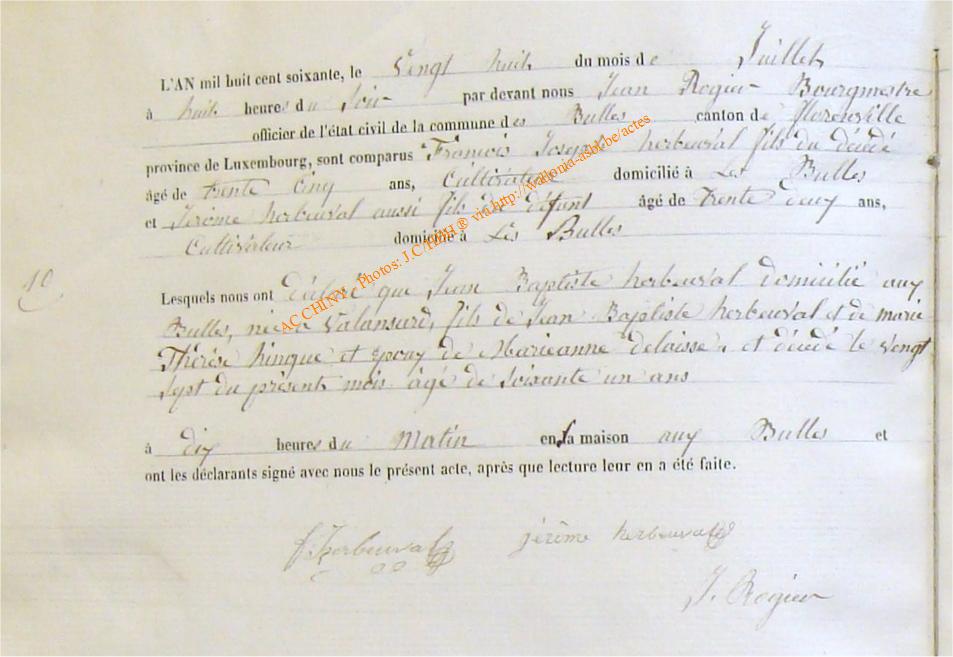 L'AN mil huit cent soixante, le Vingt huit du mois de Juillet
à huit heures du Soir par devant nous Jean Rogier Bourgmestre
officier de l'état civil de la commune des Bulles canton de Florenville
province de Luxembourg, sont comparus François Joseph herbeuval fils du décédé
âgé de trente Cinq ans, Cultivateur domicilié à Les Bulles
et Jérôme herbeuval aussi fils du défunt âgé de trente deux ans,
Cultivateur domicilié à Les Bulles
10
Lesquels nous ont déclaré que Jean Baptiste herbeuval domicilié aux
Bulles, né à Valansard, fils de Jean Baptiste herbeuval et de marie
Thérèse hinque et époux de Marieanne delaisse, et décédé le Vingt
Sept du présent mois âgé de Soixante un ans
à dix heures du Matin en sa maison aux Bulles et
ont les déclarants signé avec nous le présent acte, après que lecture leur en a été faite.
f. herbeuval jérôme herbeuval
J. Rogier
AC CHINY - Photos: J.C/HBH ® via http://wallonia-asbl.be/actes